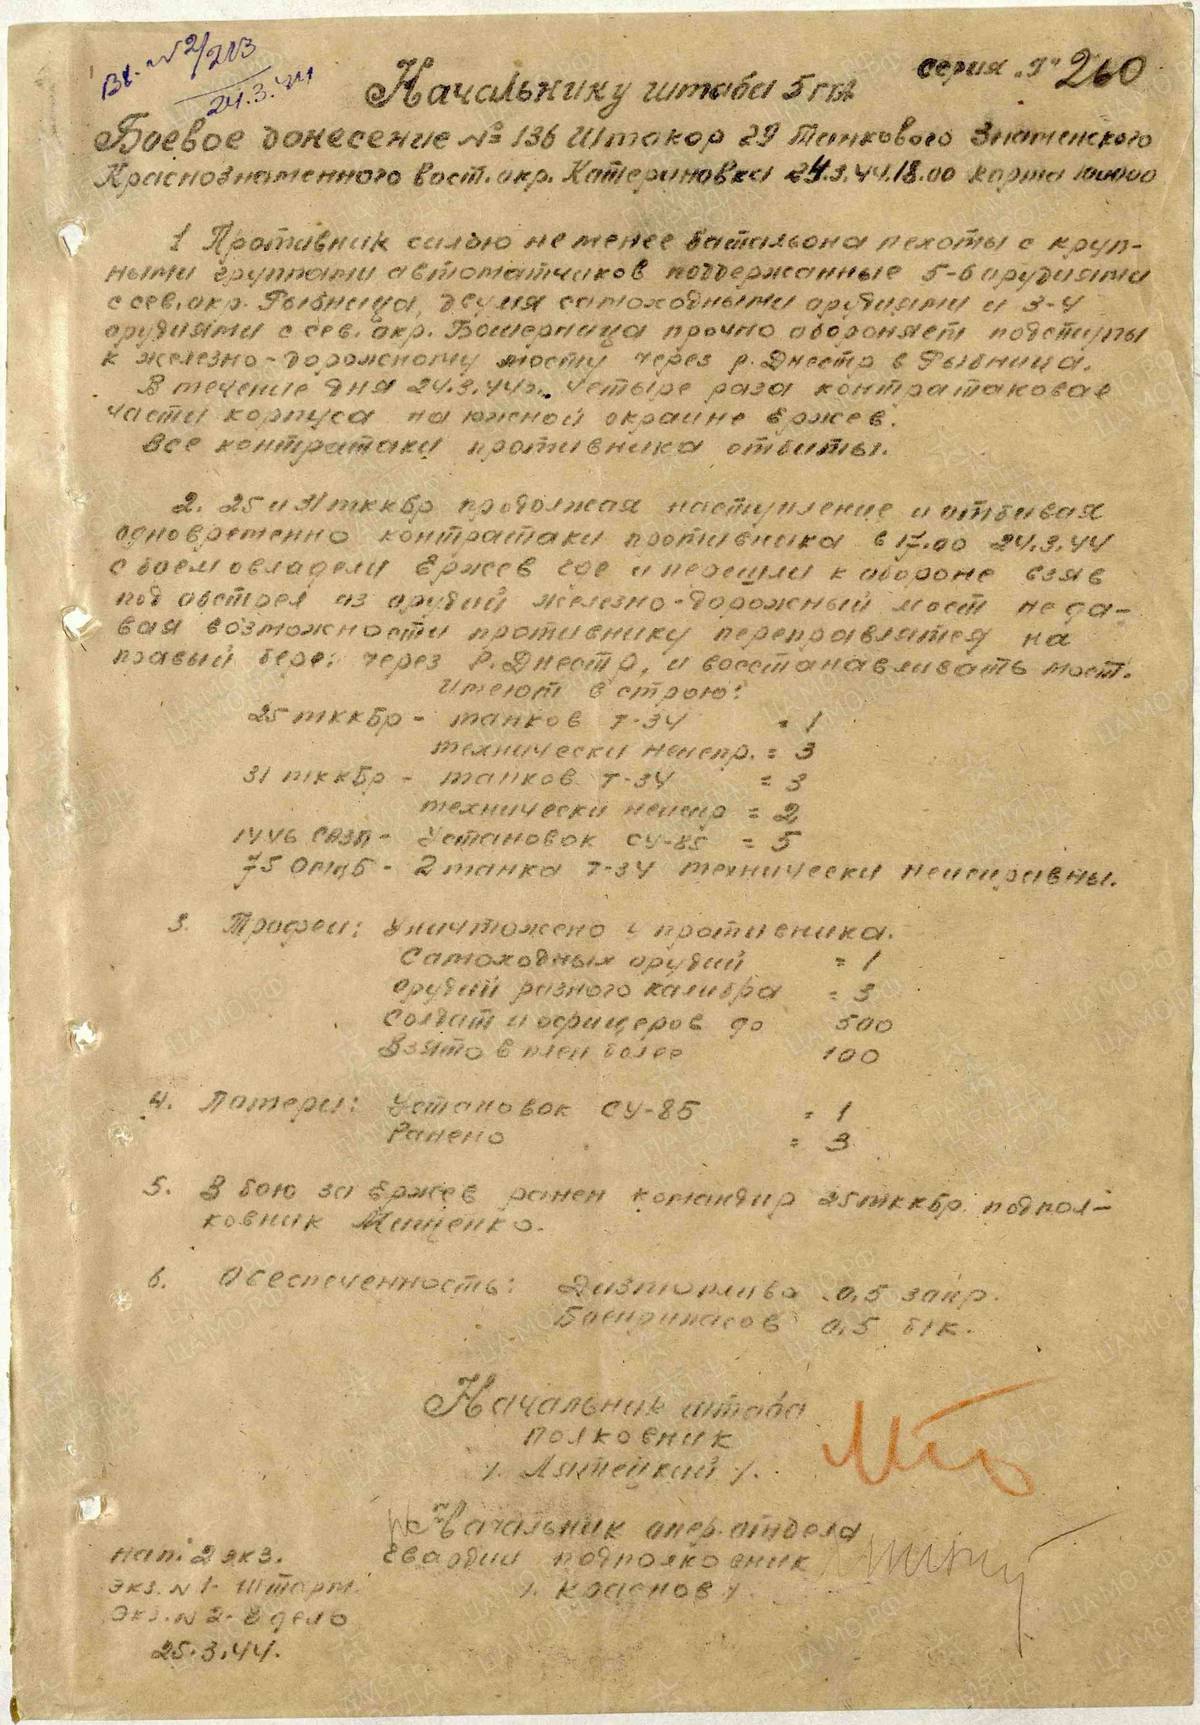 Вх. №2/213
24.3.44
серия "Г" 260
Начальнику штаба 5 гв. ТА
Боевое донесение № 136 Штакор 29 Танкового Знаменского
Краснознаменного вост. окр. Катериновка 24.3.44. 18.00 карта 100000
1 Противник силою не менее батальона пехоты с круп-
ными группами автоматчиков поддержанные 5-6 орудиями
с сев. окр. Рыбница, двумя самоходными орудиями и 3-4
орудиями с сев. окр. Бошерница прочно обороняет подступы
к железно-дорожному мосту через р. Днестр в Рыбница.
В течение дня 24.3.44г. четыре раза контратаковал
части корпуса на южной окраине Ержев.
Все контратаки противника отбиты.
2. 25 и 31 тккбр продолжая наступление и отбивая
одновременно контратаки противника в 17.00 24.3.44
с боем овладели Ержев где и перешли к обороне взяв
под обстрел из орудий железно-дорожный мост не да-
вая возможности противнику переправлятся на
правый берег через р. Днестр, и восстанавливать мост.
Имеют в строю:
25 тккбр - танков Т-34 = 1
технически неиспр. = 3
31 тккбр - танков Т-34 = 3
технически неиспр = 2
1446 САП - Установок СУ-85 = 5
75 - 2 танка Т-34 технически неисправны.
3. Трофеи: Уничтожено у противника.
Самоходных орудий = 1
Орудий разного калибра = 3
Солдат и офицеров до 500
Взято в плен более 100
4. Потери: Установок СУ-85 = 1
Ранено = 3
5. В бою за Ержев ранен командир 25 тккбр. подпол-
ковник Мищенко.
6. Обеспеченность: Дизтоплива 0,5 запр.
Боеприпасов 0,5 б/к.
Начальник штаба
полковник
/. Лятецкий /.
Начальник опер. отдела
Гвардии подполковник
/. Краснов /.
нап. 2 экз.
Экз. №1 - Штарм
Экз. №2 - В дело
25.3.44.